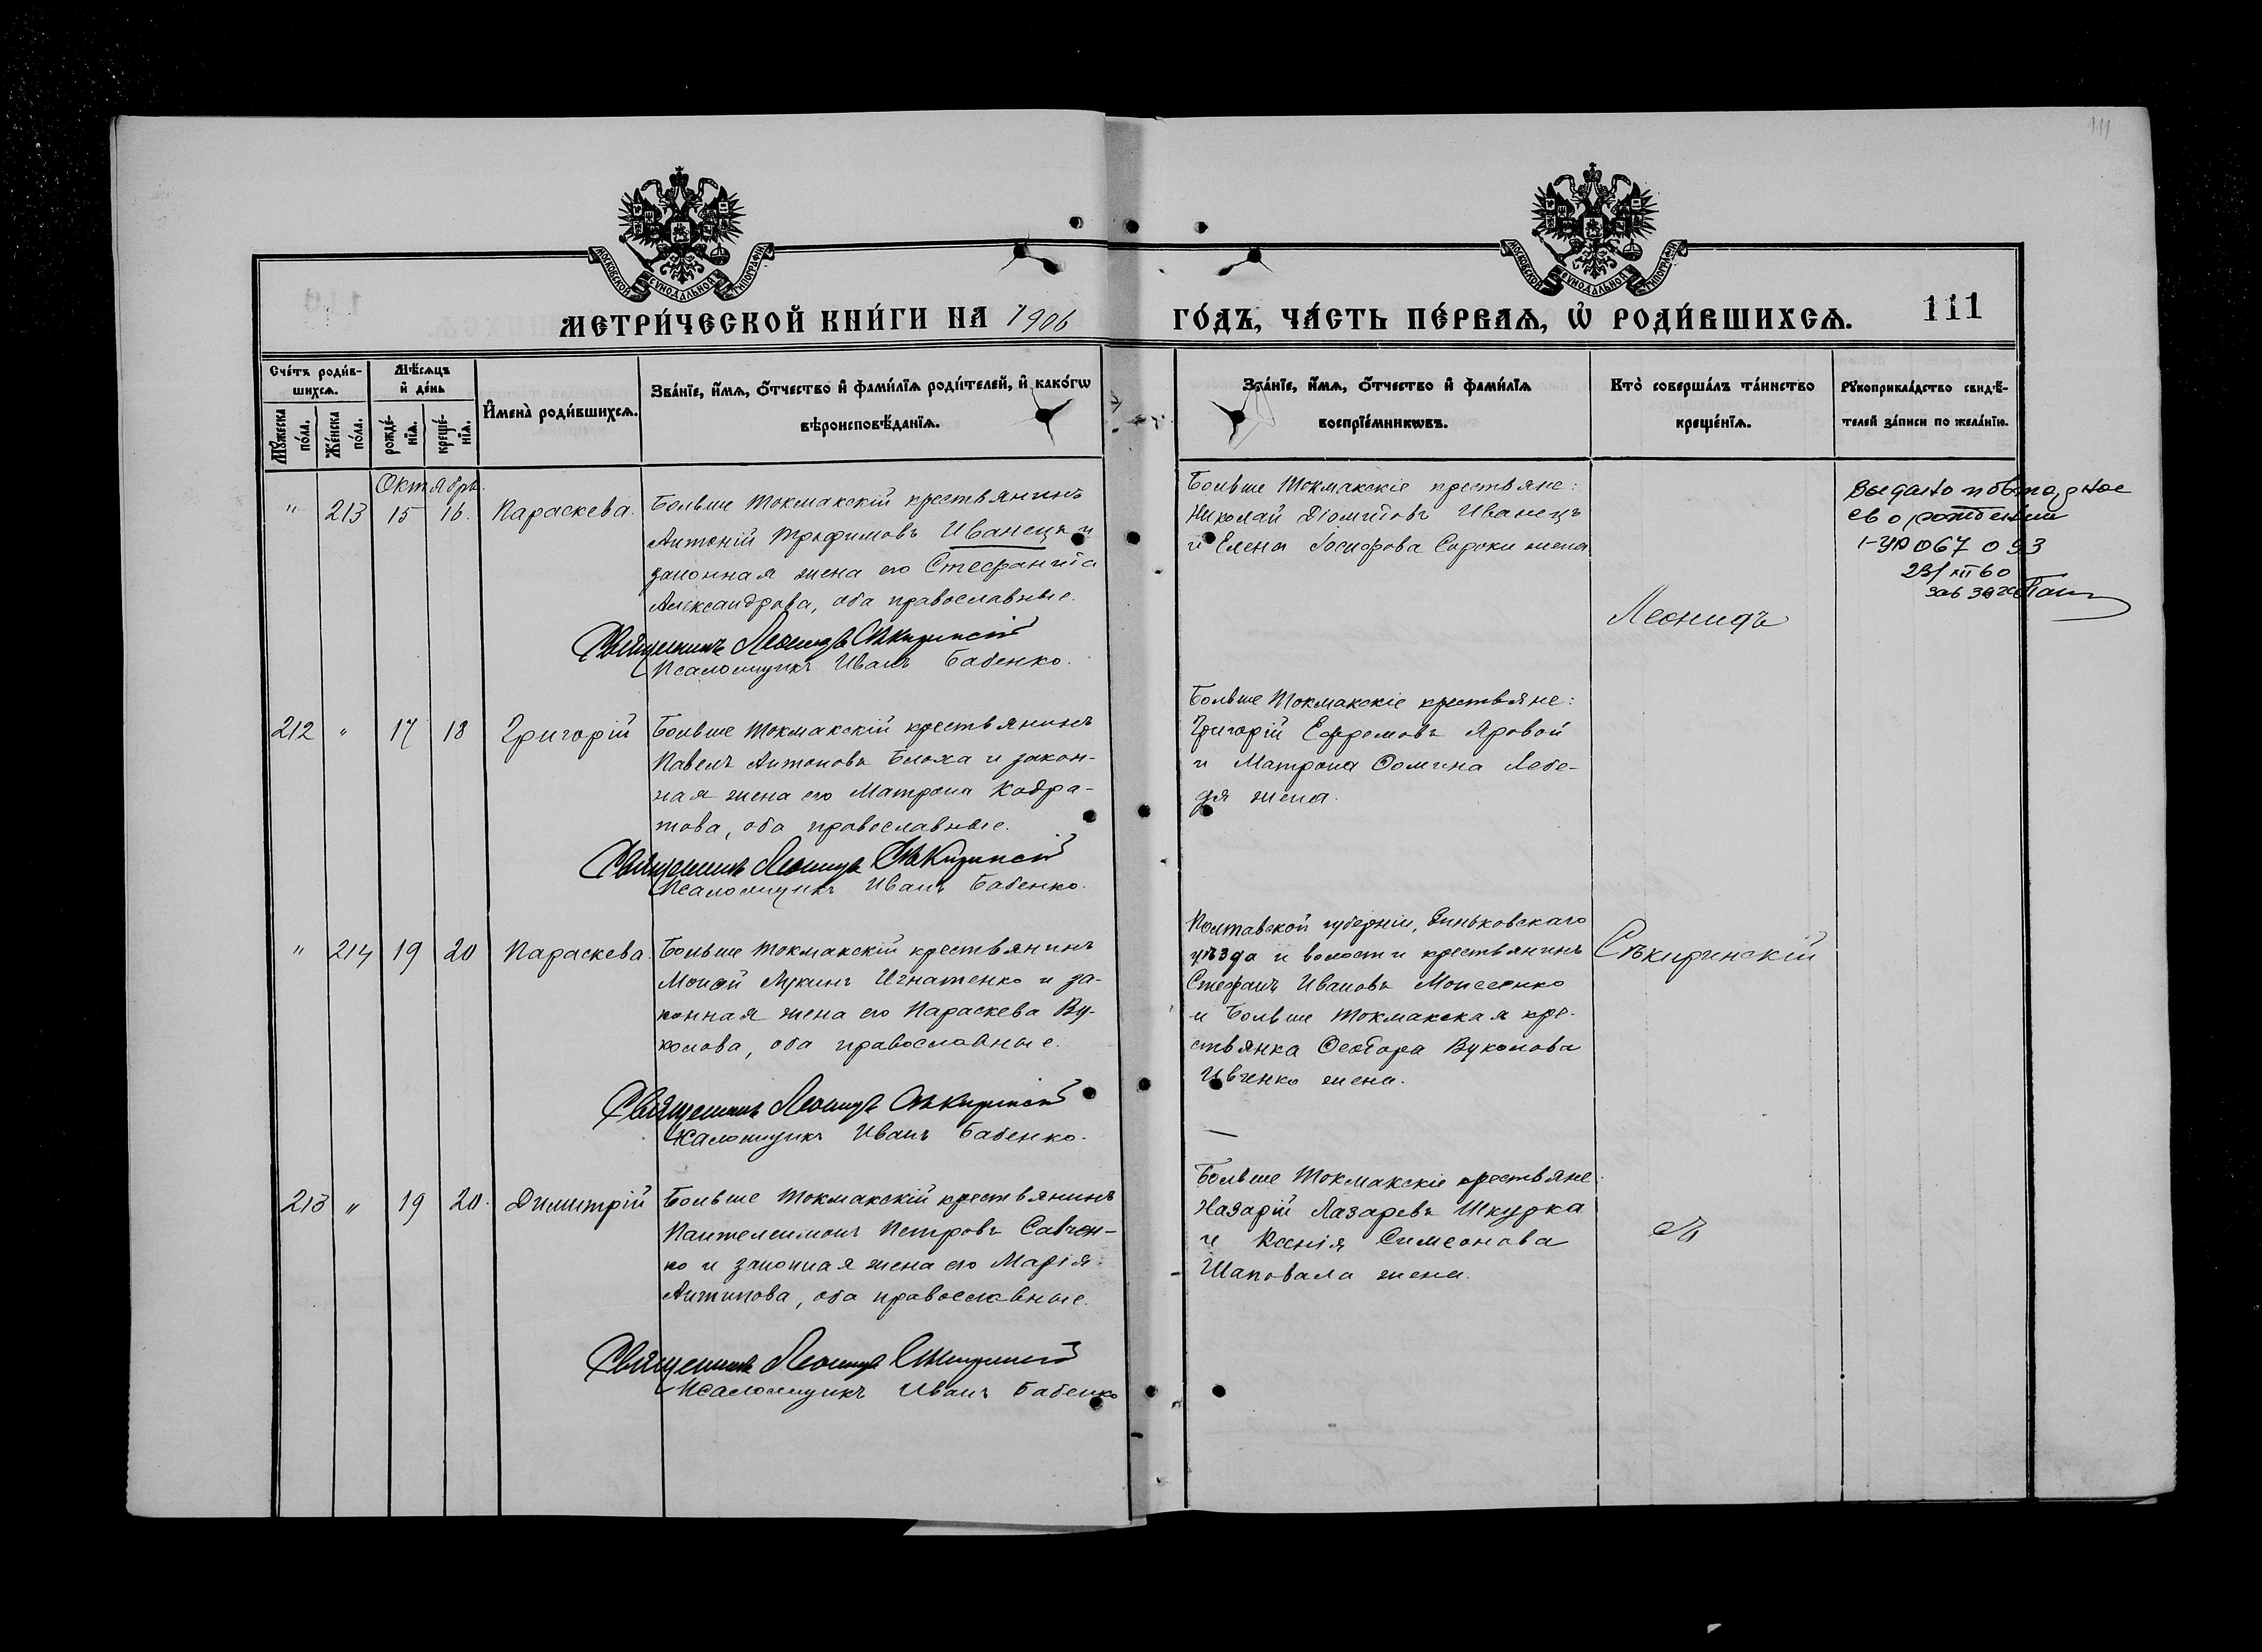 111
МОСКОВСКОЙ СУНОДАЛЬНОЙ ТИПОГРАФІИ
МОСКОВСКОЙ СУНОДАЛЬНОЙ ТИПОГРАФІИ
МЕТРИ́ЧЕСКОЙ КНИ́ГИ НА 1906
ГО́ДЪ, ЧА́СТЬ ПЕ́РВАѦ, Ѡ҆ РОДИ́ВШИХСѦ.
111
Сче́тъ роди́в-
шихсѧ.
Мꙋ́жеска
по́ла.
Же́нска
по́ла.
Мѣ́сѧцъ
и҆ де́нь
рожде́-
нїѧ.
креще́-
нїѧ.
И҆мена̀ роди́вшихсѧ.
Зва́нїе, и҆́мѧ, ѻ҆́тчество и҆ фами́лїѧ роди́телей, и҆ како́гѡ
вѣроисповѣ́данїѧ.
Зва́нїе, и҆́мѧ, ѻ҆́тчество и҆ фами́лїѧ
воспрїе́мникѡвъ.
Кто̀ соверша́лъ та́инство
креще́нїѧ.
Рꙋкоприкла́дство свидѣ́-
телей за́писи по жела́нїю.
Октябрь.
" 213 15 16. Параскева.
Больше Токмакскій крестьянинъ
Антоній Трофимовъ Иванецъ и
законная жена его Стефанида
Александрова, оба православные.
Священникъ Леонидъ Сѣкиринскій
Псаломщикъ Иванъ Бабенко.
Больше Токмакскіе крестьяне:
Николай Діомидовъ Иванецъ
и Елена Іосифова Сороки жена
Леонидъ
Выдано повторное
св о рождении
067 093
23/XII 60
зав
212 " 17 18 Григорій
Больше Токмакскій крестьянинъ
Павелъ Антоновъ Блоха и закон-
ная жена его Матрона Кодра-
това, оба православные.
Священникъ Леонидъ Сѣкиринскій
Псаломщикъ Иванъ Бабенко.
Больше Токмакскіе крестьяне:
Григорій Ефремовъ Яровой
и Матрона Ѳомина Лебе-
дя жена.
" 214 19 20 Параскева.
Больше Токмакскій крестьянинъ
Моисей Лукинъ Игнатенко и за-
конная жена его Параскева Ву-
колова, оба православные.
Священникъ Леонидъ Сѣкиринскій
Псаломщикъ Иванъ Бабенко.
Полтавской губерніи, Зиньковскаго
уѣзда и волости крестьянинъ
Стефанъ Ивановъ Моисеенко
и Больше Токмакская кре-
стьянка Ѳеодора Вуколова
Ивченко жена.
Сѣкиринскій
213 " 19 20. Димитрій
Больше Токмакскій крестьянинъ
Пантелеимонъ Петровъ Савчен-
ко и законная жена его Марія
Антипова, оба православные.
Священникъ Леонидъ Сѣкиринскій
Псаломщикъ Иванъ Бабенко
Больше Токмакскіе крестьяне:
Назарій Лазаревъ Шкурка
и Ксенія Симеонова
Шаповала жена.